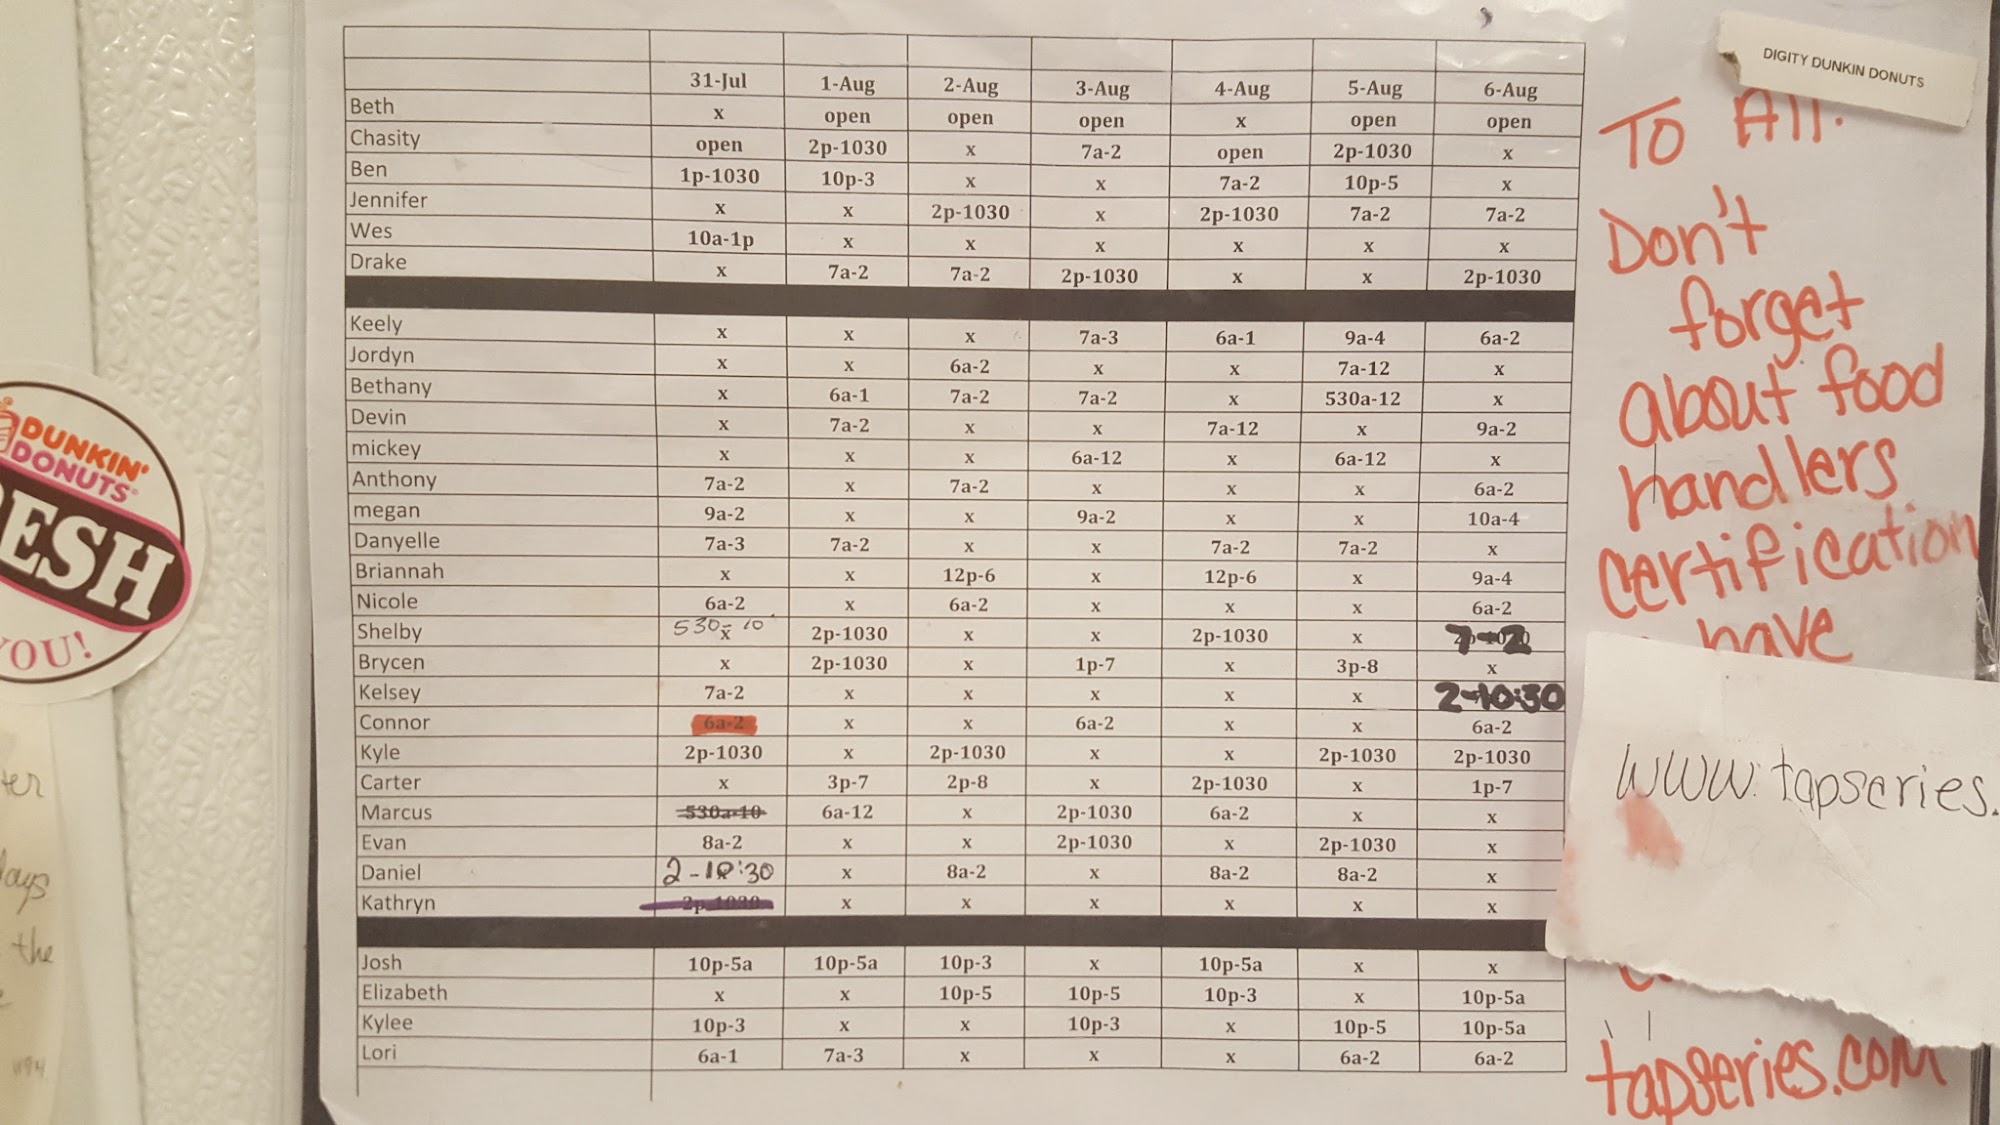 31-Jul 1-Aug 2-Aug 3-Aug 4-Aug 5-Aug 6-Aug
Beth x open open open x open open
Chasity open 2p-1030 x 7a-2 open 2p-1030 x
Ben 1p-1030 10p-3 x x 7a-2 10p-5 x
Jennifer x x 2p-1030 x 2p-1030 7a-2 7a-2
Wes 10a-1p x x x x x x
Drake x 7a-2 7a-2 2p-1030 x x 2p-1030
Keely x x x 7a-3 6a-1 9a-4 6a-2
Jordyn x x 6a-2 x x 7a-12 x
Bethany x 6a-1 7a-2 7a-2 x 530a-12 x
Devin x 7a-2 x x 7a-12 x 9a-2
mickey x x x 6a-12 x 6a-12 x
Anthony 7a-2 x 7a-2 x x x 6a-2
megan 9a-2 x x 9a-2 x x 10a-4
Danyelle 7a-3 7a-2 x x 7a-2 7a-2 x
Briannah x x 12p-6 x 12p-6 x 9a-4
Nicole 6a-2 x 6a-2 x x x 6a-2
Shelby 530-10 x 2p-1030 x x 2p-1030 x 7-2
Brycen x 2p-1030 x 1p-7 x 3p-8 x
Kelsey 7a-2 x x x x x 2-10:30
Connor 6a-2 x x 6a-2 x x 6a-2
Kyle 2p-1030 x 2p-1030 x x 2p-1030 2p-1030
Carter x 3p-7 2p-8 x 2p-1030 x 1p-7
Marcus 530a-10 6a-12 x 2p-1030 6a-2 x x
Evan 8a-2 x x 2p-1030 x 2p-1030 x
Daniel 2-10:30 x 8a-2 x 8a-2 8a-2 x
Kathryn 2p-1030 x x x x x x
Josh 10p-5a 10p-5a 10p-3 x 10p-5a x x
Elizabeth x x 10p-5 10p-5 10p-3 x 10p-5a
Kylee 10p-3 x x 10p-3 x 10p-5 10p-5a
Lori 6a-1 7a-3 x x x 6a-2 6a-2
DIGITY DUNKIN DONUTS
To All.
Don't
forget
about food
handlers
certification
have
www.tapseries.
tapseries.com
DUNKIN'
DONUTS
ESH
YOU!
ter
days
the